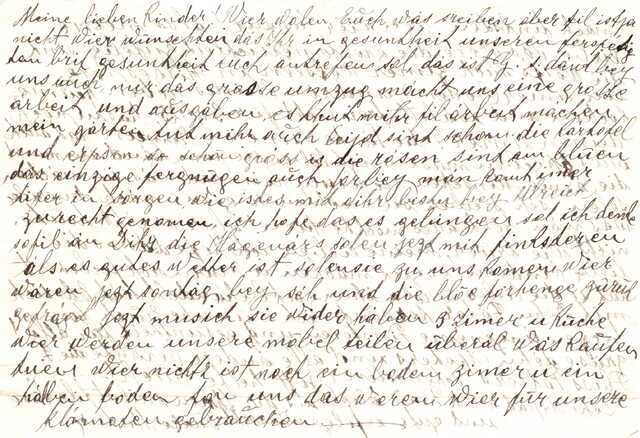 Meine lieben Kinder! Wier wolen Euch was sreiben aber fil ist ja
nicht wier wunschten das Ihr in gesuntheit unseren
ten brif gesuntheit euch antrefen sol das ist G. s. dank bey
uns auch nur das grosse umzug macht uns eine grosse
arbeit und ausgaben es thut mihr fil arbeit machen
mein garten tut mihr auch leijd sint schon die kartofel
und erpsen so schon gross u die rosen sint am bluen
das einzige fergnugen auch forbey man komt imer
tifer in sorgen wie ist es mit dihr bistu bey
zurecht genomen, ich hofe das es gelungen sol ich denk
sofil an Dihr die solen jezt mit
als es gutes wetter ist, solen sie zu uns komen wier
waren jezt sontag bey seh und die bloe forhenge zuruk
jezt mus ich sie wider haben 3 zimer u kuche
wier werden unsere mobel teilen uberal was kaufen
tuen wier nichts ist noch ein boden zimer u ein
halben boden fon uns das weren wier fur unsere
gebrauchen